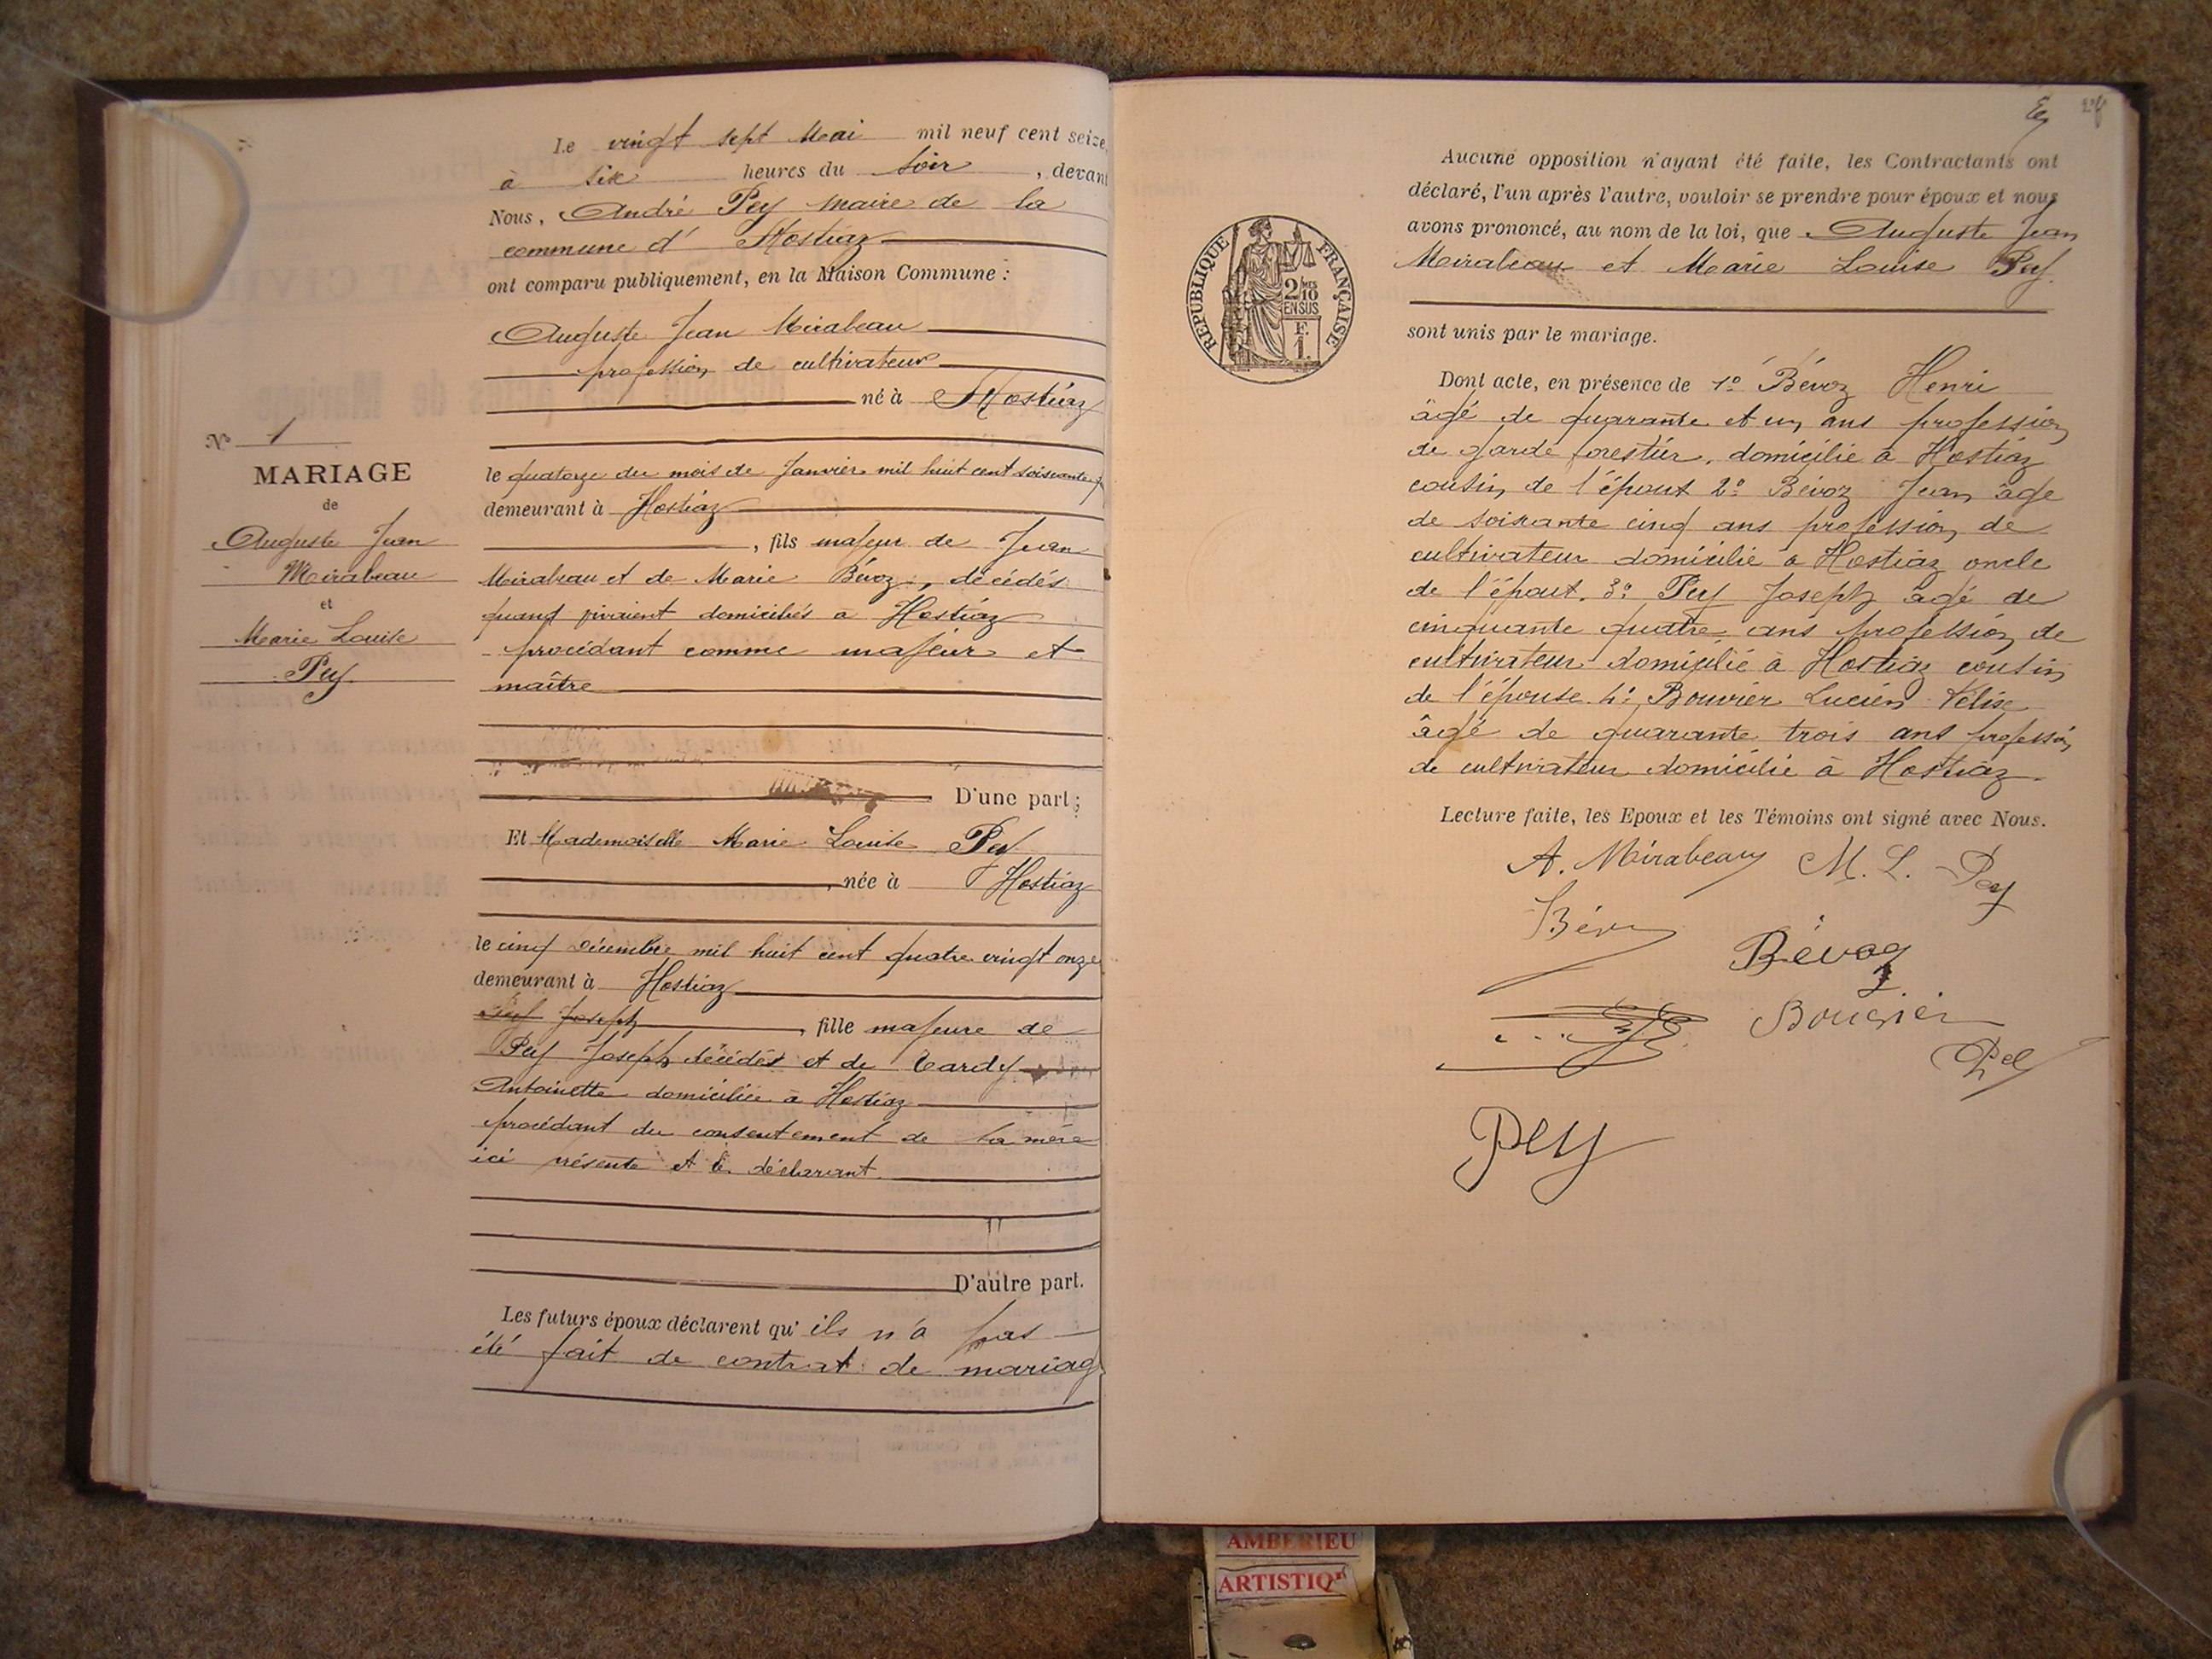 Le vingt sept Mai mil neuf cent seize,
à six heures du soir, devant
Nous, André Pey maire de la
commune d'Hostiaz
ont comparu publiquement, en la Maison Commune :
Auguste Jean Mirabeau
profession de cultivateur
né à Hostiaz
le quatorze du mois de Janvier mil huit cent soixante
demeurant à Hostiaz
, fils majeur de Jean
Mirabeau et de Marie Bévoz, décédés
quand vivaient domiciliés a Hostiaz
procédant comme majeur et
maître
D'une part ;
Et Mademoiselle Marie Louise Pey
, née à Hostiaz
le cinq Décembre mil huit cent quatre vingt onze
demeurant à Hostiaz
Pey Joseph, fille majeure de
Pey Joseph décédés et de Tardy
Antoinette domiciliée à Hostiaz
procédant du consentement de la mère
ici présente et le déclarant
D'autre part.
Les futurs époux déclarent qu'ils n'a pas
été fait de contrat de mariag
N° 1
MARIAGE
de
Auguste Jean
Mirabeau
et
Marie Louise
Pey
Aucune opposition n'ayant été faite, les Contractants ont
déclaré, l'un après l'autre, vouloir se prendre pour époux et nous
avons prononcé, au nom de la loi, que Auguste Jean
Mirabeau et Marie Louise Pey.
sont unis par le mariage.
Dont acte, en présence de 1° Bévoz Henri
âgé de quarante et un ans profession
de garde forestier, domicilié a Hostiaz
cousin de l'épout 2° Bévoz Jean âge
de soixante cinq ans profession de
cultivateur domicilié a Hostiaz oncle
de l'épout. 3° Pey Joseph âgé de
cinquante quatre ans profession de
cultivateur domicilié à Hostiaz cousin
de l'épouse. 4° Bouvier Lucien Félise
âgé de quarante trois ans profession
de cultivateur domicilié à Hostiaz.
Lecture faite, les Epoux et les Témoins ont signé avec Nous.
A. Mirabeau M. L. Pey
Bévoz
Bouvier
Pey
RÉPUBLIQUE FRANÇAISE
2/10 MES
EN SUS
F.
1.
AMBERIEU
ARTISTIQ